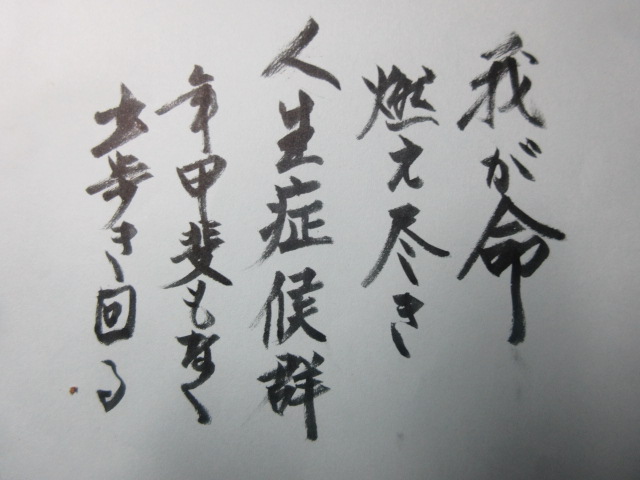 我が命
燃え尽き
人生症候群
年甲斐もなく
出歩き回る